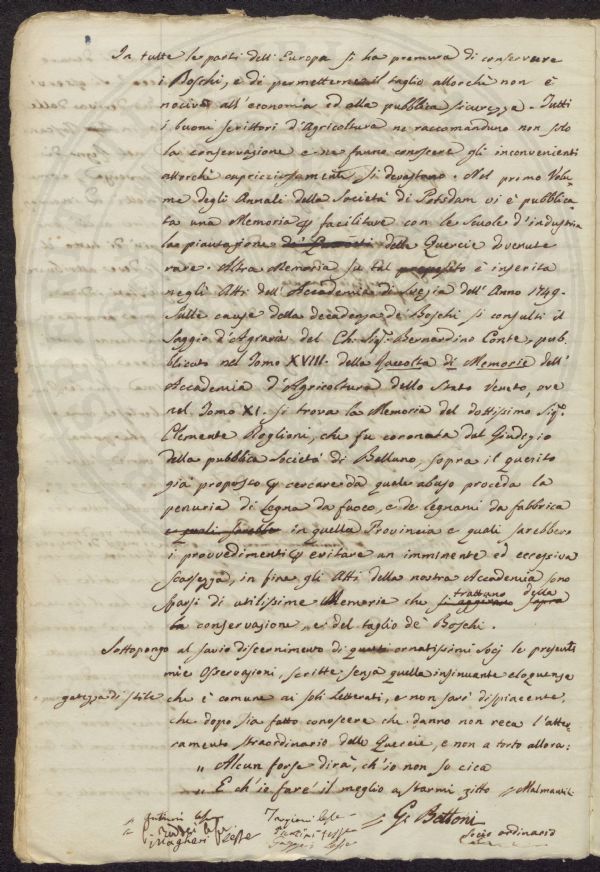 In tutte le parti dell'Europa si ha premura di conservare
i Boschi, e di permetterne il taglio allorchè non è
nocivo all'economia ed alla pubblica sicurezza. Tutti
i buoni scrittori d'Agricoltura ne raccomandano non solo
la conservazione e ne fanno conoscere gli inconvenienti
allorchè capricciosamente si devastano. Nel primo Volu-
me degli Annali della Società di Potsdam vi è pubblica-
ta una Memoria p facilitare con le Scuole d'industria
la piantazione della Quercie divenute
rare. Altra Memoria su tal proposito è inserita
negli Atti dell'Accademia di Svezia dell'Anno 1749.
Sulle cause della decadenza de Boschi si consulti il
Saggio d'Agraria del Ch. Sig.r Bernardino Conte, pub-
blicato nel Tomo XVIII. della Raccolta di Memorie dell'
Accademia d'Agricoltura dello Stato Veneto, ove
nel Tomo XI. si trova la Memoria del dottissimo Sig.r
Clemente, che fu coronata dal Giudizio
della pubblica Società di Belluno, sopra il quesito
già proposto p cercare da quale abuso proceda la
penuria di Legna da fuoco, e de Legnami da fabbrica
e quali sarebbe in quella Provincia e quali sarebbero
i provvedimenti p evitare un imminente ed eccessiva
scarsezza, in fine gli Atti della nostra Accademia sono
sparsi di utilissime Memorie che si aggirano sopra
trattano della
la conservazione, e del taglio de' Boschi.
Sottopongo al savio discernimento di questi ornatissimi Socj le presenti
mie Osservazioni, scritte senza quella insinuante eloquenza
gatezza di stile che è comune ai soli Letterati, e non sarà dispiacente,
che dopo sia fatto conoscere che danno non reca l'atter-
ramento straordinario delle Quercie, e non a torto allora:
„ Alcun forse dirà, ch'io non so cica
„ E ch'io farei il meglio a starmi zitto Malmantil.
G. Bettoni
Socio ordinario
Targioni lesse
Magheri lesse